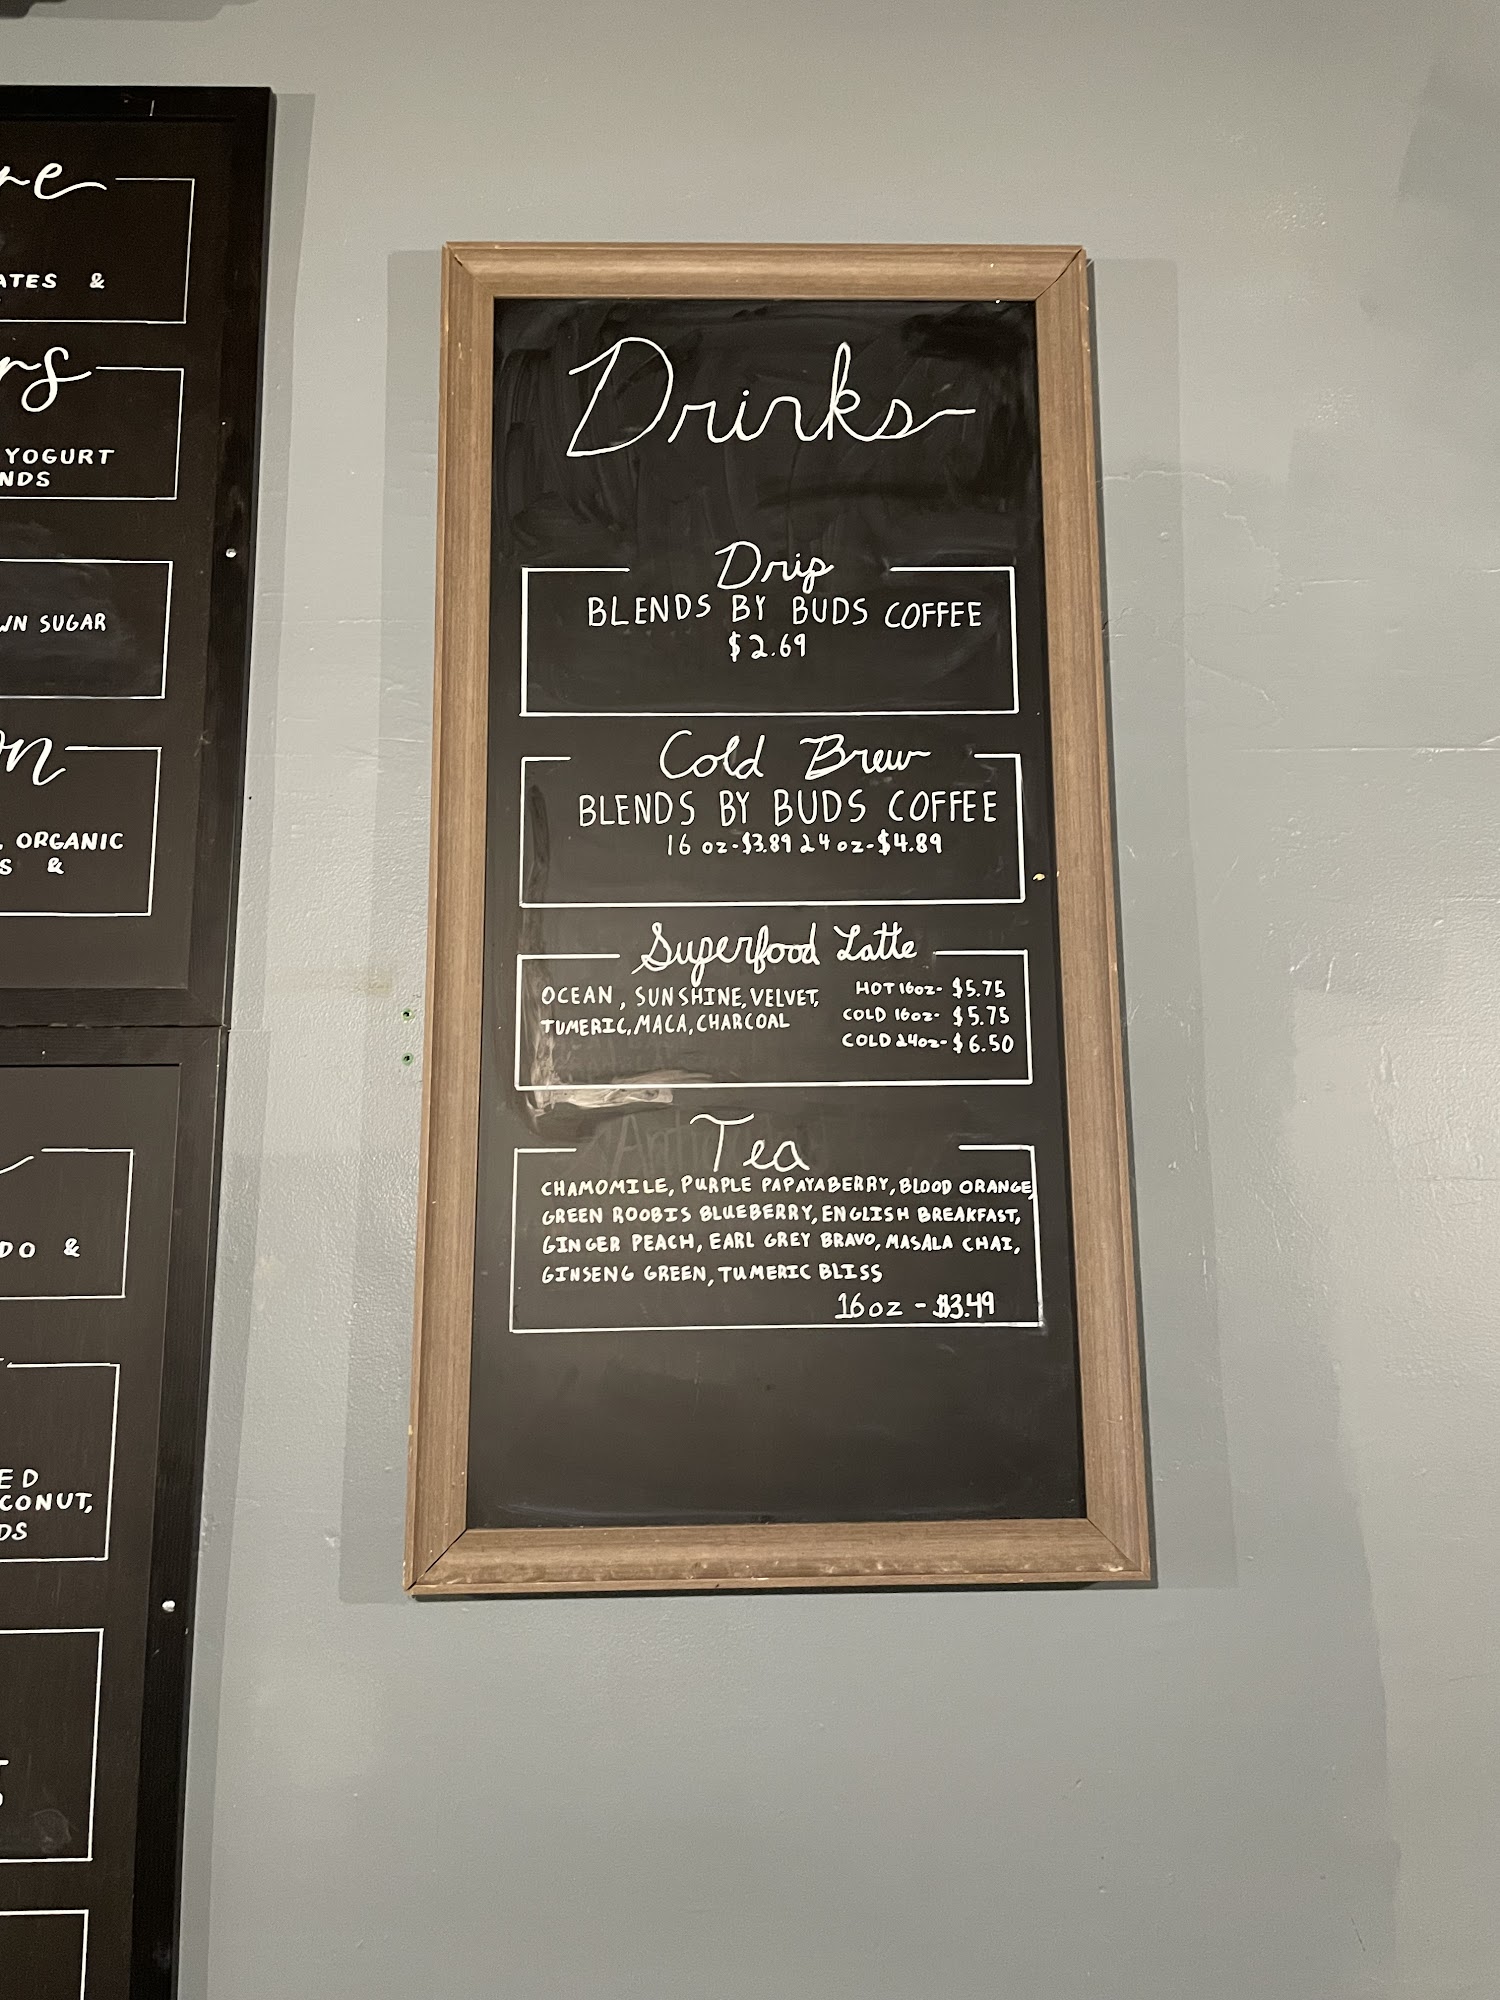 re
ATES &
rs
YOGURT
NDS
WN SUGAR
on
, ORGANIC
S &
DO &
ED
CONUT,
DS
Drinks
Drip
BLENDS BY BUDS COFFEE
$2.69
Cold Brew
BLENDS BY BUDS COFFEE
16 oz-$3.89 24 oz-$4.89
Superfood Latte
OCEAN, SUNSHINE, VELVET,
TUMERIC, MACA, CHARCOAL
HOT 16oz- $5.75
COLD 16oz- $5.75
COLD 24oz- $6.50
Tea
CHAMOMILE, PURPLE PAPAYABERRY, BLOOD ORANGE,
GREEN ROOBIS BLUEBERRY, ENGLISH BREAKFAST,
GINGER PEACH, EARL GREY BRAVO, MASALA CHAI,
GINSENG GREEN, TUMERIC BLISS
16oz - $3.49